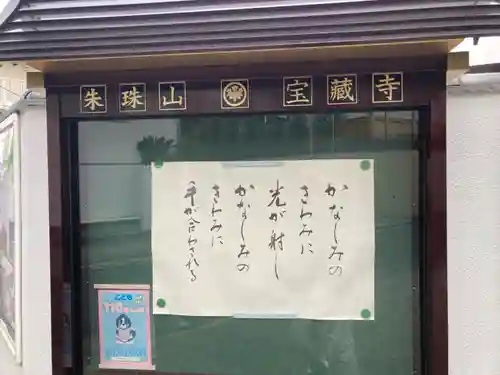 朱珠山 宝蔵寺
かなしみの
きわみに
光が射し
かなしみの
きわみに
手が合わされる
110